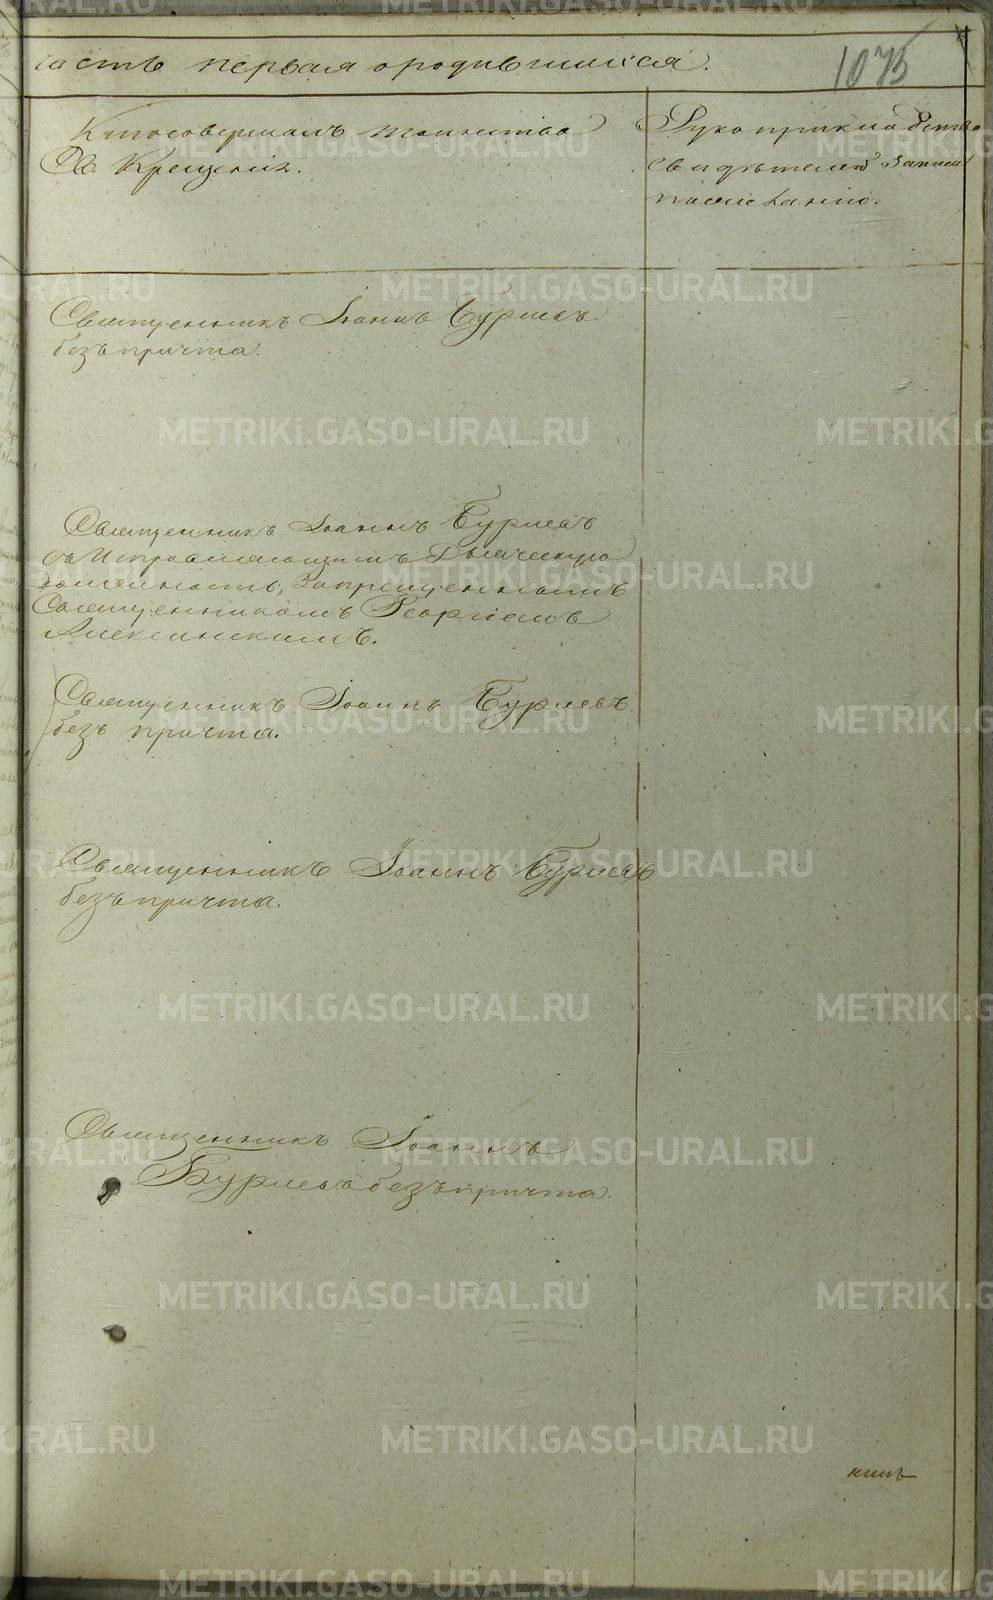 часть первая о родившихся.
1075
Кто совершалъ таинство
Св. Крещенія.
Рукоприкладство
свидѣтелей записи
по желанію.
Священникъ Іоаннъ Бурлевъ
безъ причта.
Священникъ Іоаннъ Бурлевъ
съ исправляющимъ Дьяческую
должность, Запрещеннымъ
Священникомъ Георгіемъ
Алексинскимъ.
Священникъ Іоаннъ Бурлевъ
безъ причта.
Священникъ Іоаннъ Бурлевъ
безъ причта.
Священникъ Іоаннъ
Бурлевъ безъ причта.
METRIKI.GASO-URAL.RU